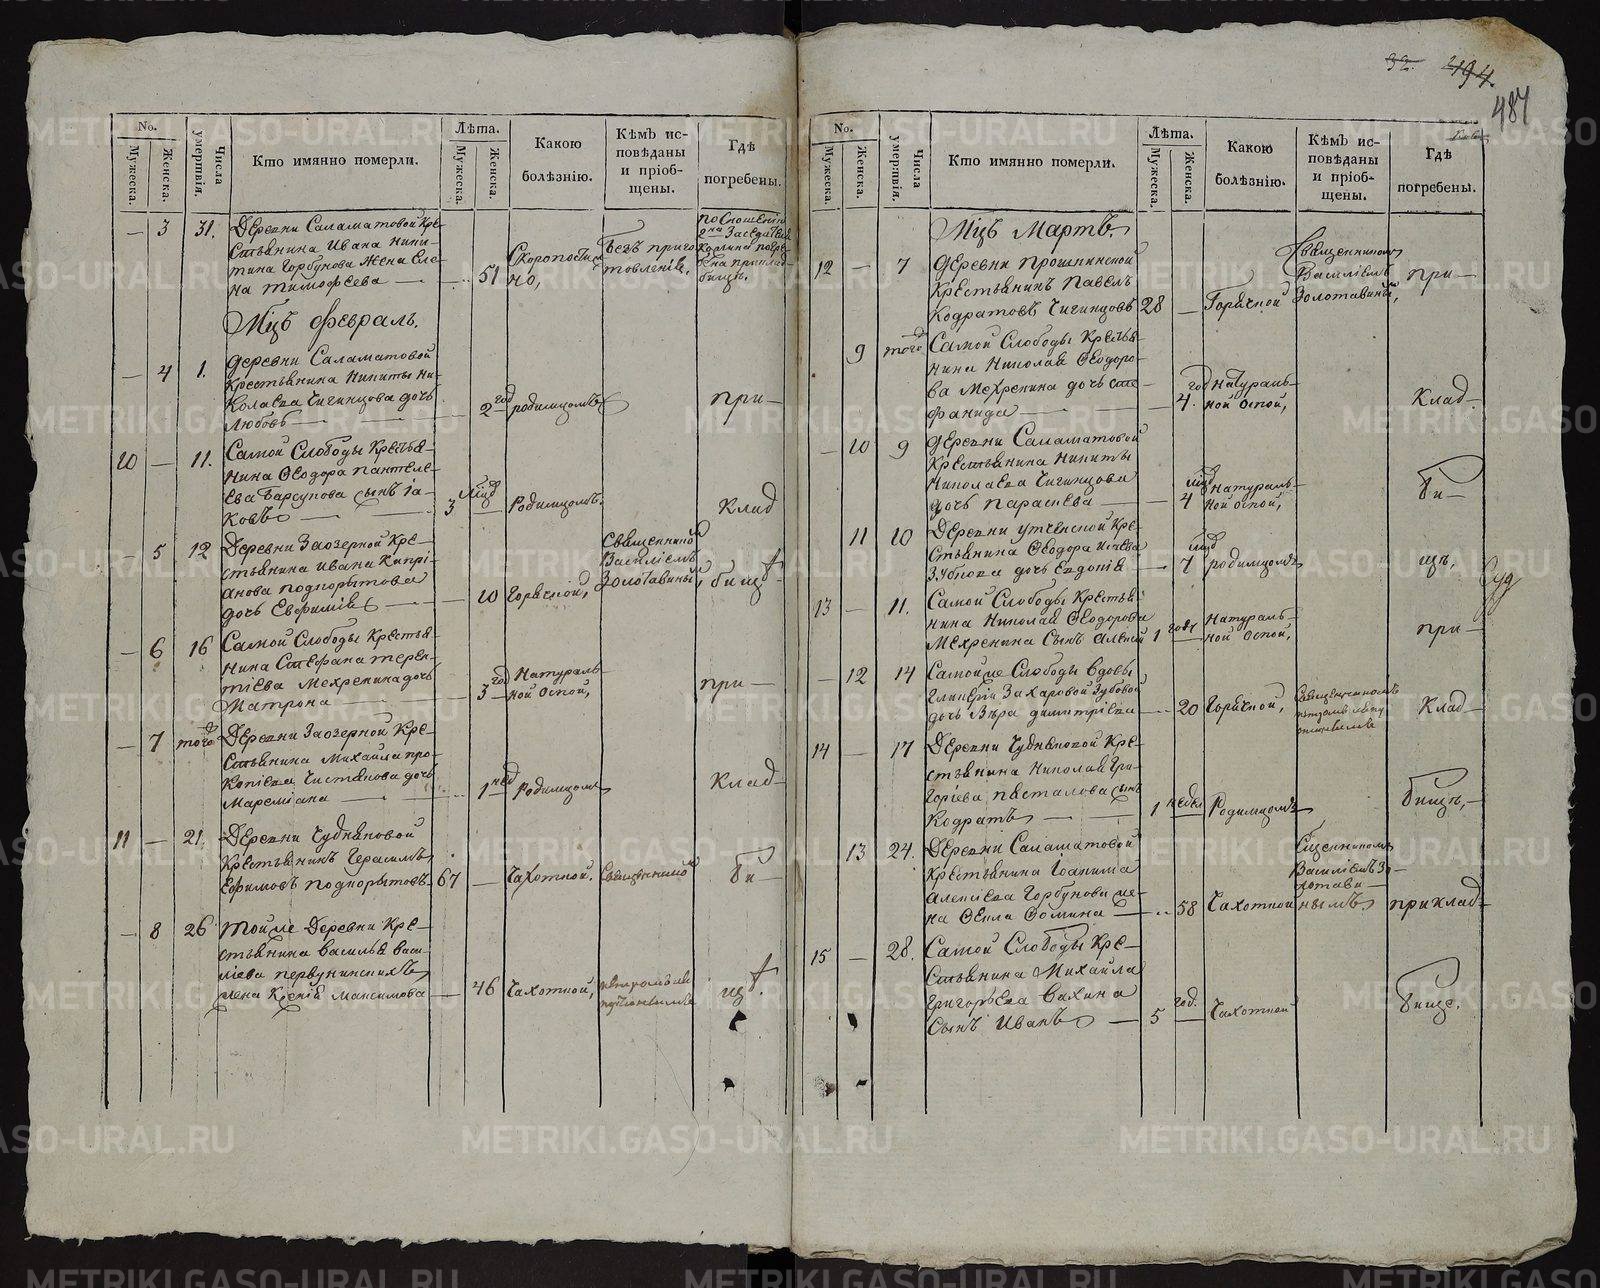 32. 494.
487
No.
Мужеска.
Женска.
Числа умертвія.
Кто имянно померли.
Лѣта.
Мужеска.
Женска.
Какою болѣзнію.
Кѣмъ исповѣданы и пріобщены.
Гдѣ погребены.
— 3 31.
Деревни Саламатовой Кре-
стьянина Ивана Ники-
тина Горбунова Жена Еле-
на Тимофеева —
51
Скоропостиж
но,
Безъ приго
товленія,
по Сношенію
Мцъ Февраль.
— 4 1.
Деревни Саламатовой
Крестьянина Никиты Ни-
колаева Чигинцова дочь
Любовь —
2 год
родимцомъ
при—
10 — 11.
Самой Слободы Крестья-
нина Ѳеодора Пантеле-
ева Барсукова сынъ Іа-
ковъ —
3 мцд
Родимцомъ.
Клад
— 5 12
Деревни Заозерной Кре-
стьянина Ивана Кипрі-
анова Подкорытова
дочь Евфимія —
10
Горячкой,
Священнико
Василіемъ
Золотавины
бищ.
— 6 16
Самой Слободы Крестья-
нина Стефана Терен-
тіева Мехренина дочь
Матрона —
3 год
Натураль-
ной Оспой,
при—
— 7 того
Деревни Заозерной Кре-
стьянина Михайла Про-
копіева Чистякова дочь
Мареміана —
1 нед
Родимцомъ
Клад—
11 — 21.
Деревни Чудняковой
Крестьянинъ Герасимъ
Ефимовъ Подкорытовъ
67 —
Чахоткой.
Священнико
би—
— 8 26
Тойже Деревни Кре-
стьянина Василья Васи-
лiева Первунинскихъ
жена Ксенія Максимова
— 46
Чахоткой,
щ.
No.
Мужеска.
Женска.
Числа умертвія.
Кто имянно померли.
Лѣта.
Мужеска.
Женска.
Какою болѣзнію.
Кѣмъ исповѣданы и пріобщены.
Гдѣ погребены.
Мцъ Мартъ.
12 — 7
Деревни Прошкинской
Крестьянинъ Павелъ
Кодратовъ Чигинцовъ
28 —
Горячкой
Священникомъ
Василіемъ
Золотавинымъ,
при—
9 того
Самой Слободы Крестья-
нина Николая Ѳеодоро-
ва Мехренина дочь Сте-
фанида —
— 4. год
натураль-
ной оспой,
Клад.
— 10 9
Деревни Саламатовой
Крестьянина Никиты
Николаева Чигинцова
дочь Параскева —
— 4 мцд
Натураль-
ной Оспой,
би—
11 10
Деревни Утченской Кре-
стьянина Ѳеодора Исаева
Зубкова дочь Евдокія —
7 мцд
родимцомъ
щъ.
13 — 11.
Самой Слободы Крестья-
нина Николая Ѳеодорова
Мехренина Сынъ Алексей
1 годъ
Натураль-
ной Оспой,
при—
— 12 14
Самойже Слободы Вдовы
Гликеріи Захаровой Зубовой
дочь Вѣра Димитріева
— 20
Горячкой,
Священникомъ
Клад—
14 — 17
Деревни Чудняковой Кре-
стьянина Николая Гри-
горіева Пасталова сынъ
Кодратъ —
1 недел
Родимцомъ
бищъ,—
13 24.
Деревни Саламатовой
Крестьянина Іоакима
Алексіева Горбунова же-
на Ѳекла Ѳомина —
58
Чахоткой
Сщенникомъ
Василіемъ Зо-
лотави—
нымъ.
приклад—
15 — 28.
Самой Слободы Кре-
стьянина Михайла
Григорьева Вахина
Сынъ Иванъ —
5 год.
Чахоткой
бище.
METRIKI.GASO-URAL.RU